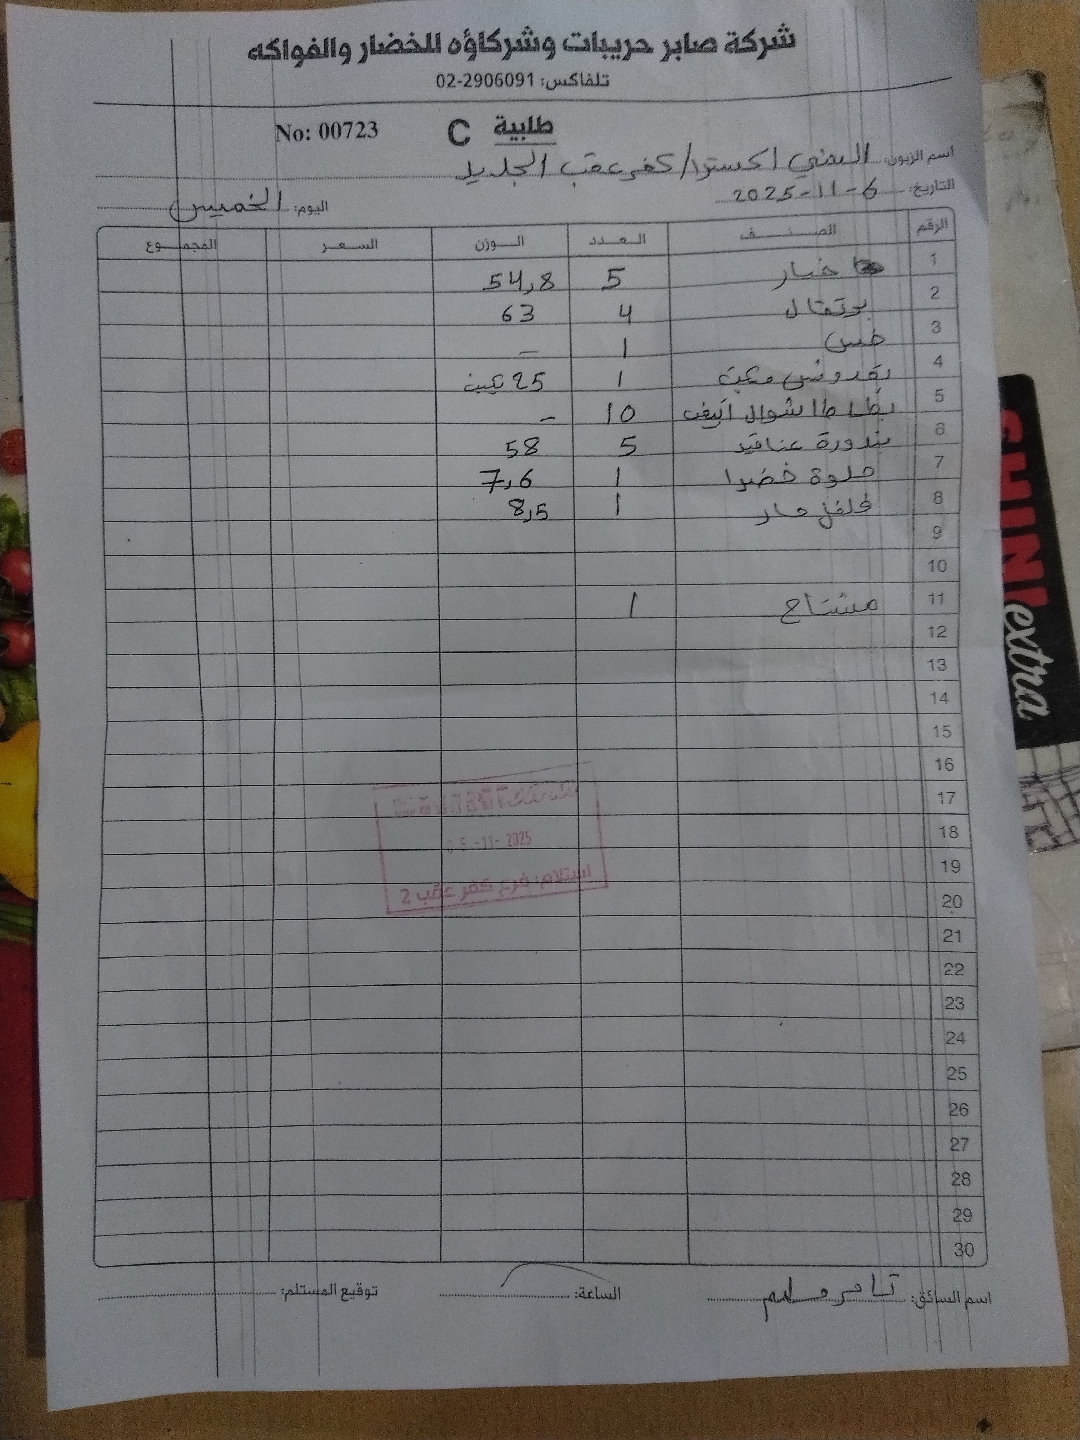 شركة صابر حريبات وشركاؤه للخضار والفواكه
تلفاكس: 02-2906091
No: 00723 C طلبية
اسم الزبون: اليمني اكسترا/كفر عقب الجديد
التاريخ: 6-11-2025
اليوم: الخميس
الرقم الصنف العدد الوزن السعر المجموع
1 خيار 5 54,8
2 برتقال 4 63
3 خس 1 -
4 بقدونس مكبت 1 25
5 بطاطا شوال 10 -
6 بندورة عناقيد 5 58
7 حلوة خضرا 1 7,6
8 فلفل حار 1 8,5
9
10
11 مشتاح 1
12
13
14
15
16
17
18
19
20
21
22
23
24
25
26
27
28
29
30
5 -11- 2025
استلام: فرع كفر عقب 2
اسم السائق: تامر
الساعة:
توقيع المستلم:
SHINI
extra